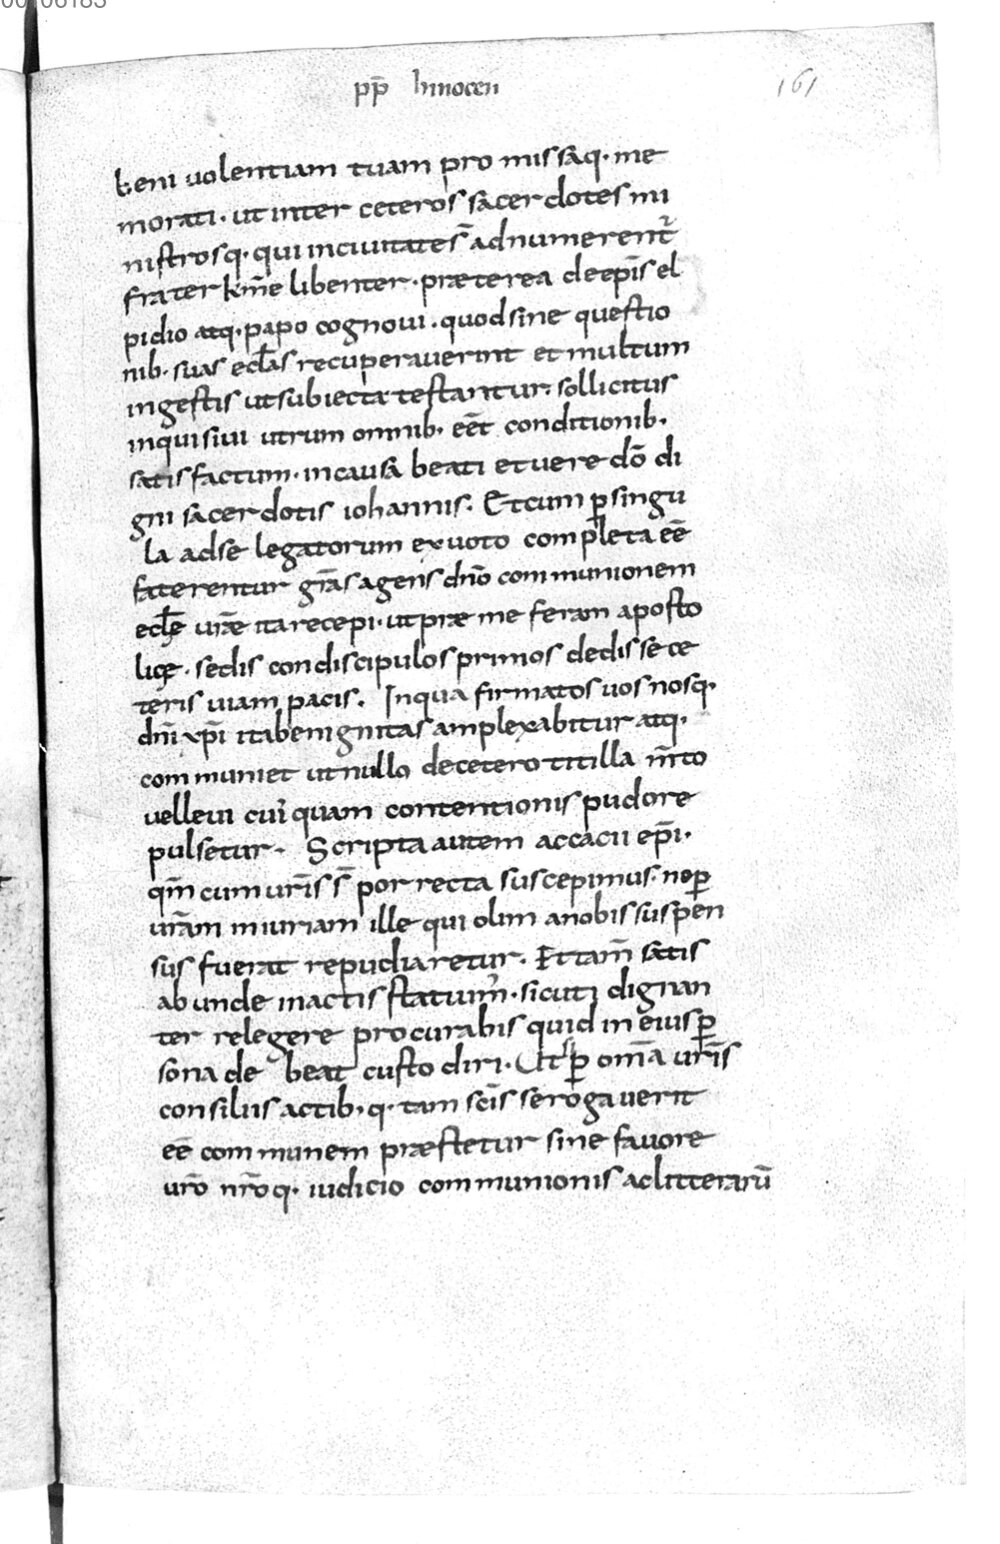 00106183
pp̄ Innocen
161
beniuolentiam tuam pro missaq. me
morati. ut inter ceteros sacerdotes mi
nistrosq. qui in ciuitate s̄ adnumerent᷑
frater km̄e libenter. praeterea de ep̄is el
pidio atq. papo cognoui. quod sine questio
nib. suas ecl̄as recuperauerint et multum
in gestis ut subiecta testantur. sollicitus
inquisiui utrum omnib. eēt conditionib.
satisfactum. in causa beati et uere dō di
gni sacerdotis iohannis. Et cum p̱ singu
la adse legatorum ex uoto completa eē
faterentur gr̄as agens dn̄o communionem
ecl̄ę ur̄ae ita recepi. ut prae me feram aposto
licę. sedis condiscipulos primos dedisse ce
teris uiam pacis. In qua firmatos uos nosq.
dn̄i xp̄i ita benignitas amplexabitur atq.
communiet ut nullo de cetero titilla m̄to
uelleui cui'quam contentionis pudore
pulsetur. Scripta autem accacii ep̄i.
qm̄ cum ur̄is s̄ porrecta suscepimus. ne p̱
ur̄am iniuriam ille qui olim a nobis suspen
sus fuerat repudiaretur. Et tam̄ satis
abunde in actis statuim᷒. sicuti dignan
ter relegere procurabis quid in eius p̱
sona debeat custodiri. Ut p̱ om̄a ur̄is
consiliis actib. q. tam sc̄is se rogauerit
eē communem praestetur sine fauore
ur̄o nr̄oq. iudicio communionis ac litterarū